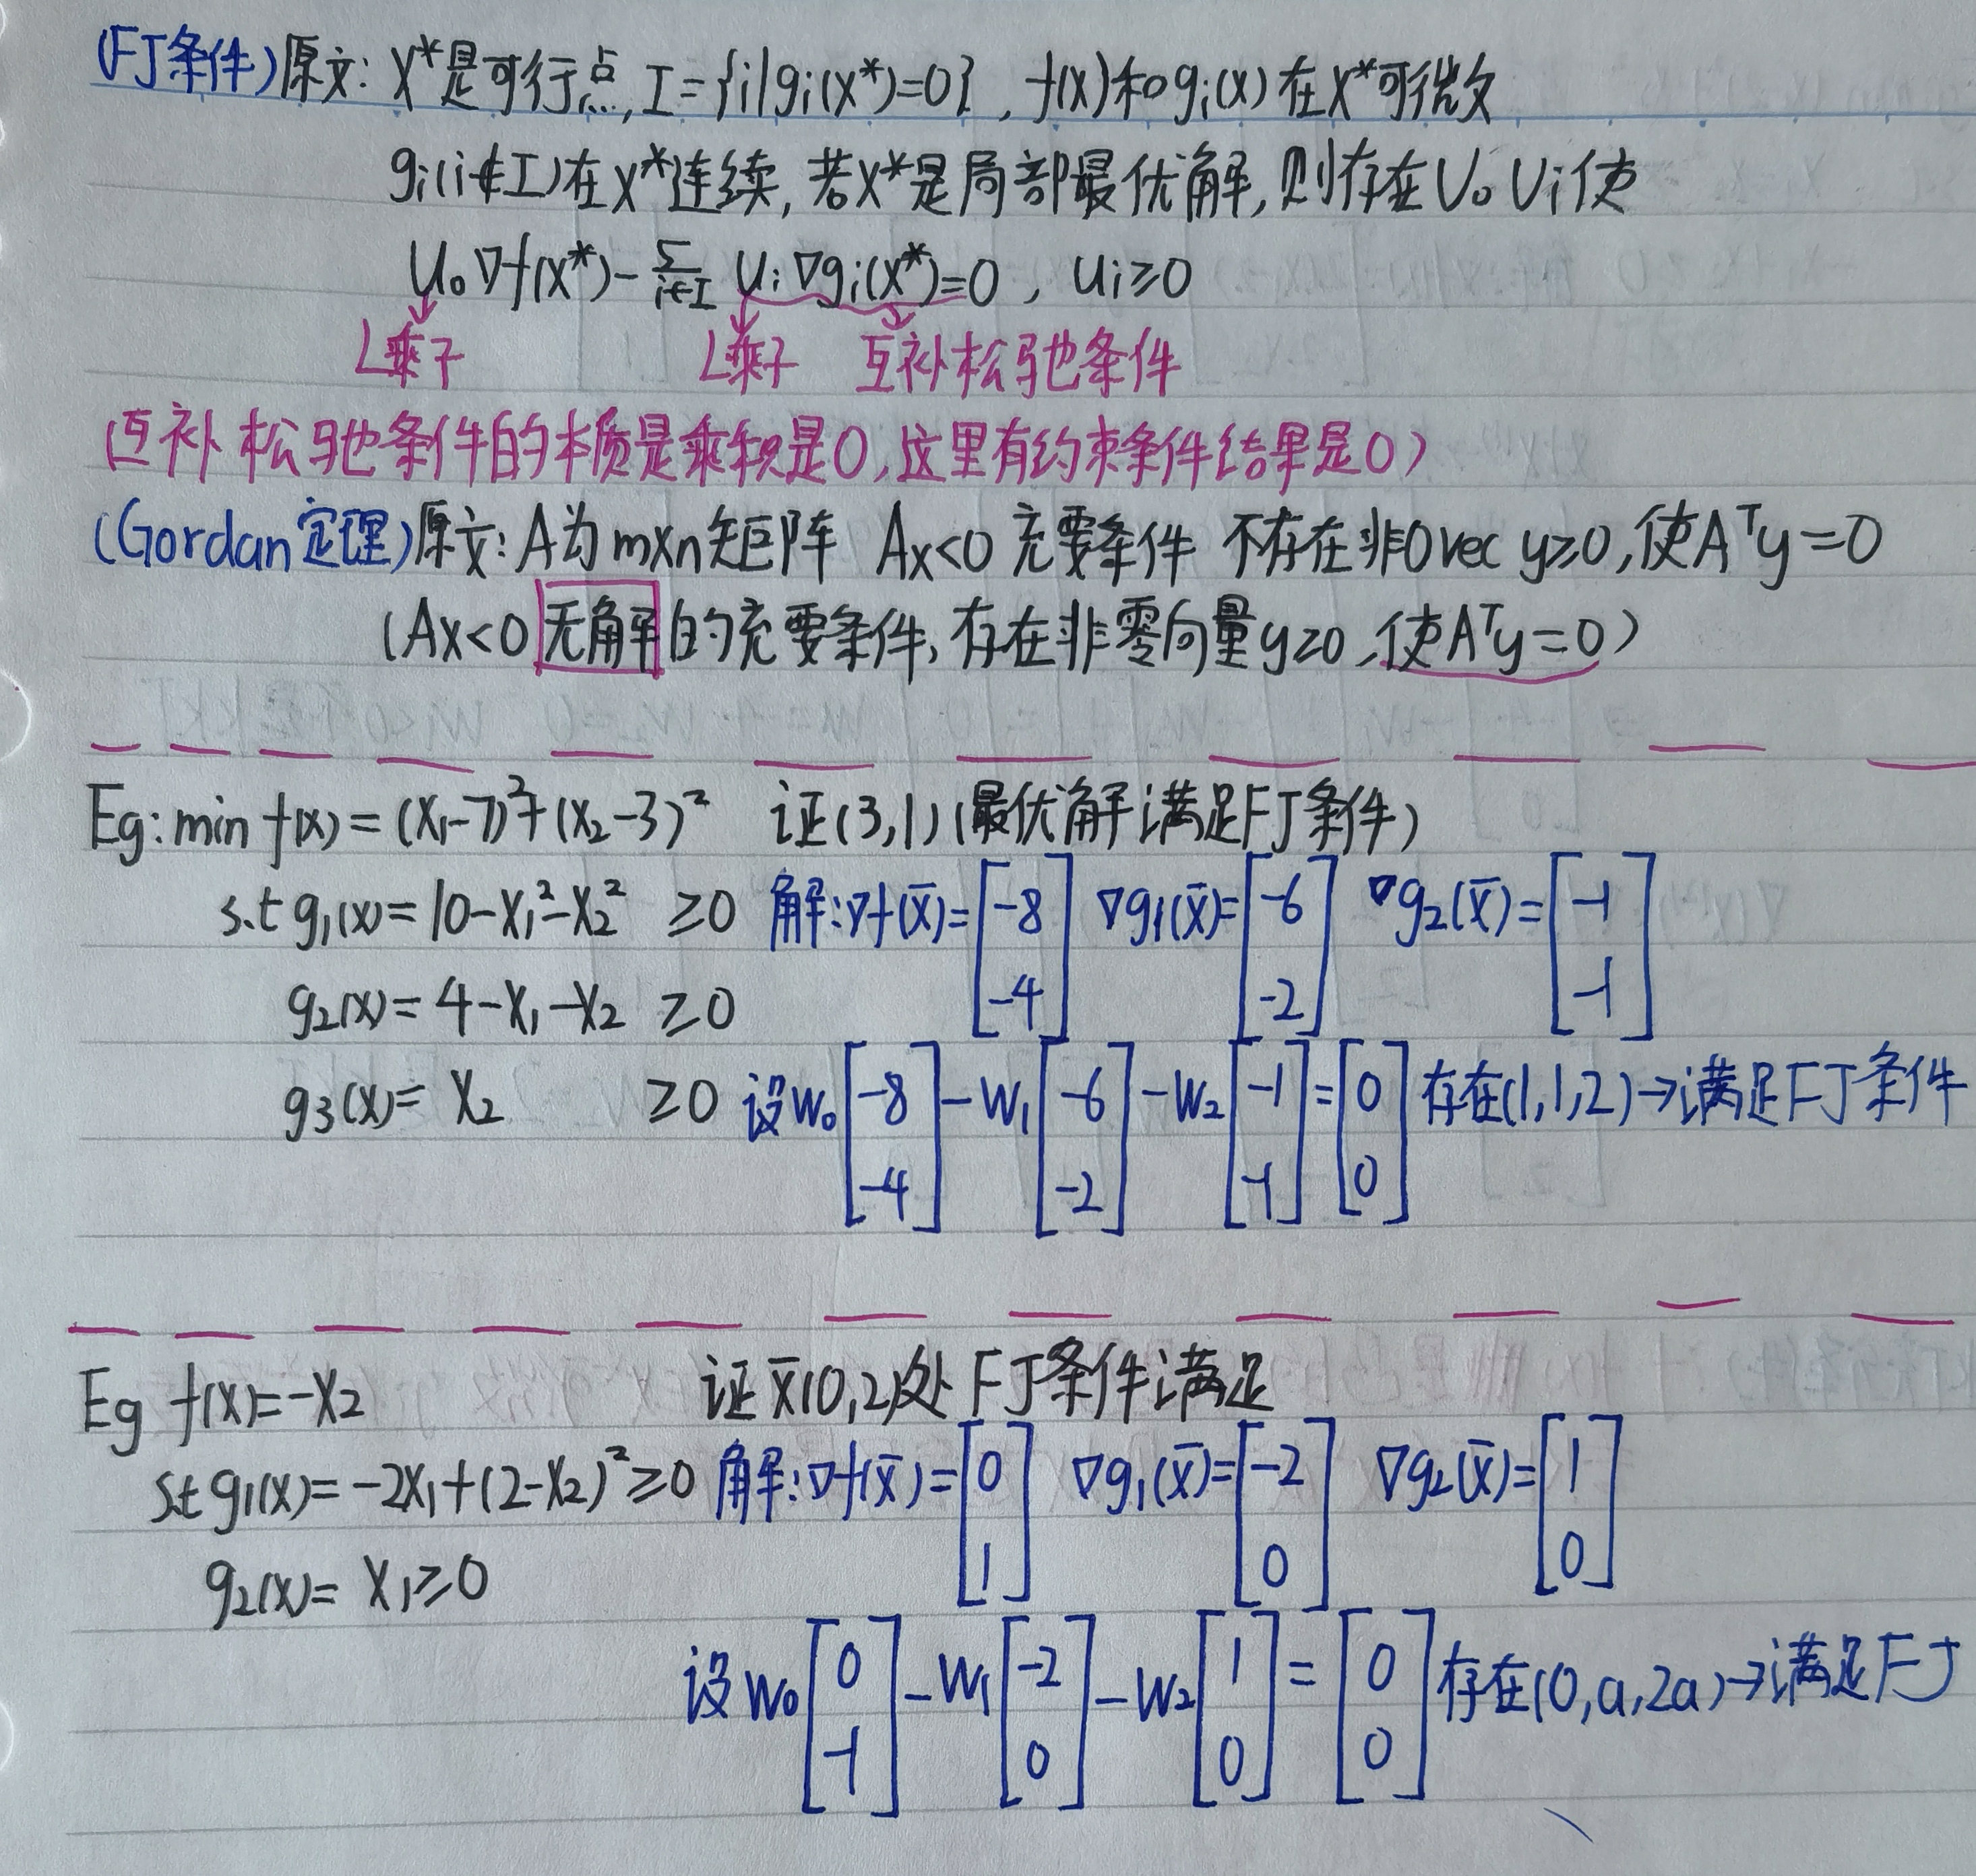 (FJ条件)原文: X*是可行点, I={i|gi(x*)=0}, f(x)和gi(x)在x*可微
gi(i∉I)在x*连续,若x*是局部最优解,则存在U₀ Ui使
U₀∇f(x*)-∑i∈I Ui∇gi(x*)=0, Ui≥0
L乘子 L乘子 互补松弛条件
(互补松弛条件的本质是乘积是0,这里有约束条件结果是0)
(Gordan定理)原文: A为m×n矩阵 Ax<0 充要条件 不存在非0vec y≥0,使Aᵀy=0
(Ax<0无解的充要条件,存在非零向量y≥0,使Aᵀy=0)
Eg: min f(x)=(x₁-7)²+(x₂-3)² 证(3,1)(最优解满足FJ条件)
s.t g₁(x)=10-x₁²-x₂² ≥0 解:∇f(x̄)=[-8 -4] ∇g₁(x̄)=[-6 -2] ∇g₂(x̄)=[-1 -1]
g₂(x)=4-x₁-x₂ ≥0
g₃(x)=x₂ ≥0 设W₀[-8 -4]-W₁[-6 -2]-W₂[-1 -1]=[0 0] 存在(1,1,2)→满足FJ条件
Eg f(x)=-x₂ 证x̄(0,2)处FJ条件满足
s.t g₁(x)=-2x₁+(2-x₂)²≥0 解:∇f(x̄)=[0 1] ∇g₁(x̄)=[-2 0] ∇g₂(x̄)=[1 0]
g₂(x)=x₁≥0
设W₀[0 -1]-W₁[-2 0]-W₂[1 0]=[0 0] 存在(0,a,2a)→满足FJ